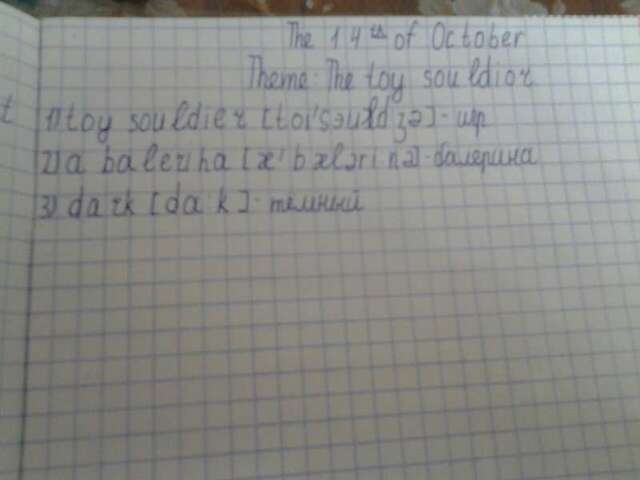 The 14th of October
Theme: The toy souldior
t
1) toy souldier [toi'səuldʒə] - игр
2) a balerina [æ'bælərinə] - балерина
3) dark [dak] - тёмный